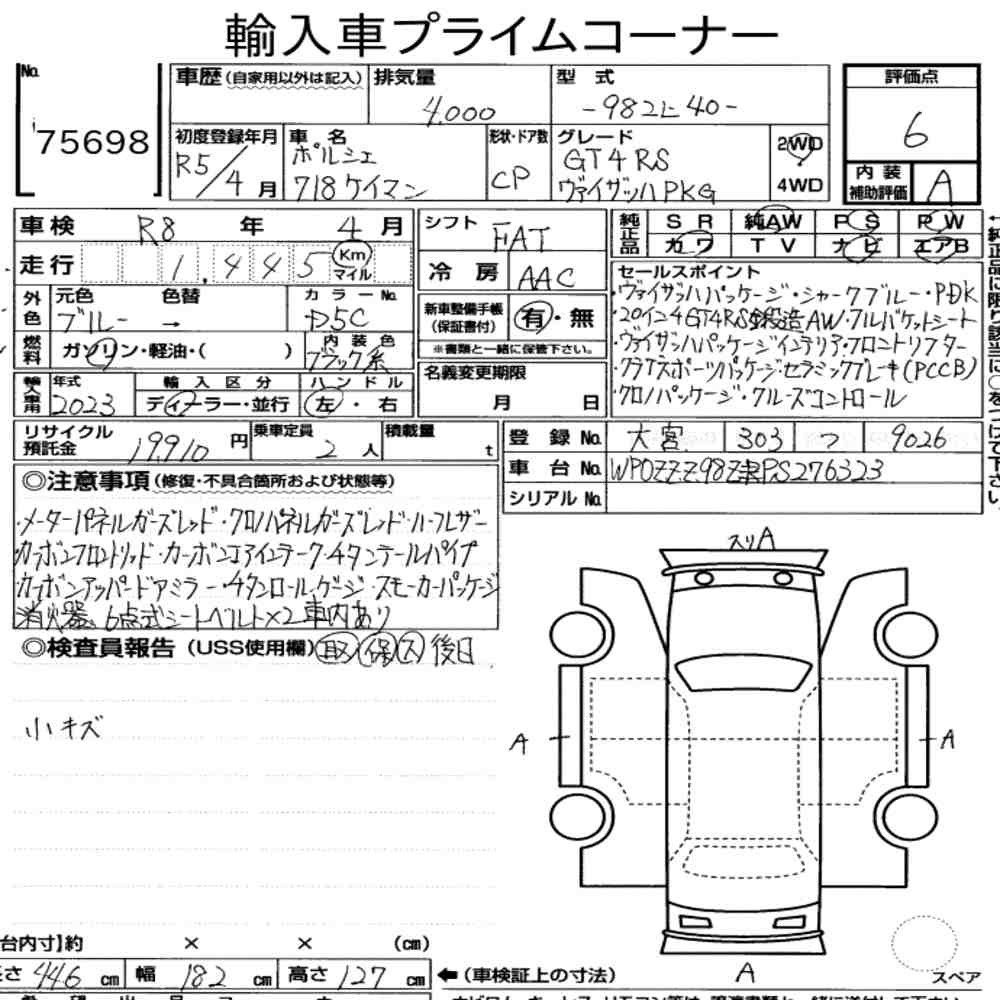 輸入車プライムコーナー
No.
75698
車歴(自家用以外は記入)
排気量
4,000
型 式
-982L40-
評価点
6
初度登録年月
R5/4月
車 名
ポルシェ
718ケイマン
形状・ドア数
CP
グレード
GT4RS
ヴァイザッハPKG
2WD
4WD
内装
補助評価
A
車検 R8 年 4月
走行 1,445 Km
マイル
シフト FAT
冷房 AAC
純正品
SR 純AW PS PW
カワ TV ナビ エアB
外色
元色 色替
ブルー →
カラーNo.
D5C
燃料
ガソリン・軽油・( )
内装色
ブラック系
新車整備手帳
(保証書付)
有・無
※書類と一緒に保管下さい。
輸入車用
年式
2023
輸入区分
ディーラー・並行
ハンドル
左・右
名義変更期限
月 日
セールスポイント
・ヴァイザッハパッケージ・シャークブルー・PDK
・20インチGT4RS鍛造AW・フルバケットシート
・ヴァイザッハパッケージインテリア・フロントリフター
・クラブスポーツパッケージ・セラミックブレーキ(PCCB)
・クロノパッケージ・クルーズコントロール
リサイクル
預託金
19,910 円
乗車定員
2 人
積載量
t
登録No. 大宮 303 9026
車台No. WP0ZZZ98ZPS276323
シリアルNo.
◎注意事項(修復・不具合箇所および状態等)
・メーターパネルガーズレッド・クロノパネルガーズレッド・ハーフレザー
カーボンフロントリッド・カーボンエアインテーク・チタンテールパイプ
カーボンアッパードアミラー・チタンロールゲージ・スモーカーパッケージ
消火器、6点式シートベルト×2 車内あり
◎検査員報告(USS使用欄)取 保 ス 後日
小キズ
スリA
A
A
A
スペア
台内寸]約 × × (cm)
長さ 446 cm 幅 182 cm 高さ 127 cm
←(車検証上の寸法)